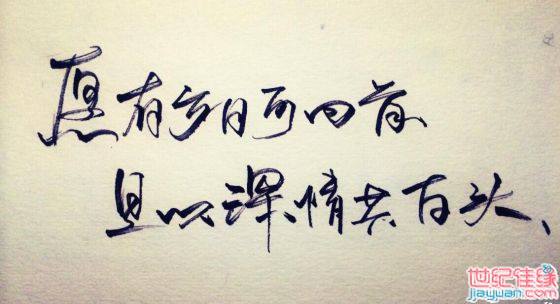 愿有岁月可回首
且以深情共百头、
世纪佳缘
jiayuan.com